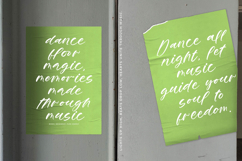 dance
ffoor
magic,
memories
made
through
music
Dance all
night, let
music
guide your
soul to
freedom.